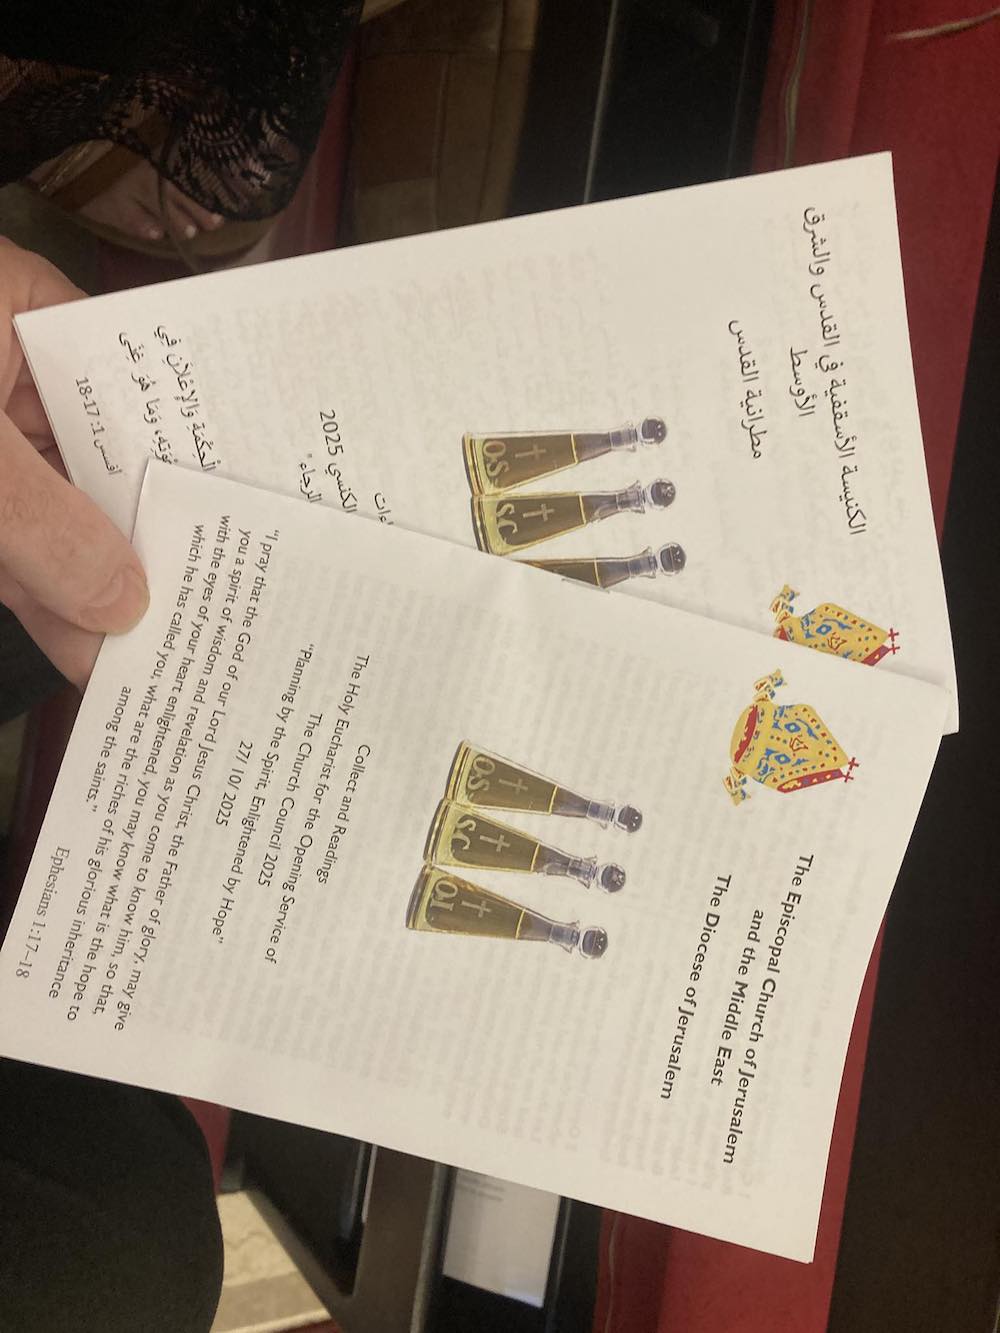 The Episcopal Church of Jerusalem
and the Middle East
The Diocese of Jerusalem
O.S
SC
O.I
Collect and Readings
The Holy Eucharist for the Opening Service of
The Church Council 2025
"Planning by the Spirit, Enlightened by Hope"
27/ 10/ 2025
"I pray that the God of our Lord Jesus Christ, the Father of glory, may give
you a spirit of wisdom and revelation as you come to know him, so that,
with the eyes of your heart enlightened, you may know what is the hope to
which he has called you, what are the riches of his glorious inheritance
among the saints."
Ephesians 1:17-18
الكنيسة الأسقفية في القدس والشرق
الأوسط
مطرانية القدس
O.S
SC
الكنسي 2025
الرجاء"
الْحِكْمَةِ وَالإِعْلاَنِ فِي
وَمَا هُوَ غِنَى
افسس 1: 17-18